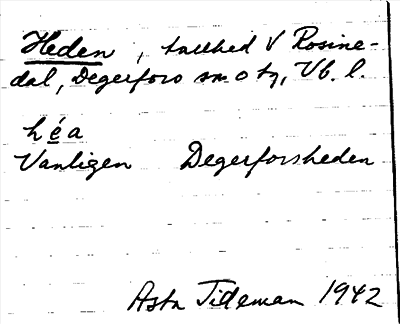 Heden, tallhed V Rosine-
dal, Degerfors sn o tg, Vb. l.
héa
Vanligen Degerforsheden
Asta Tideman 1942